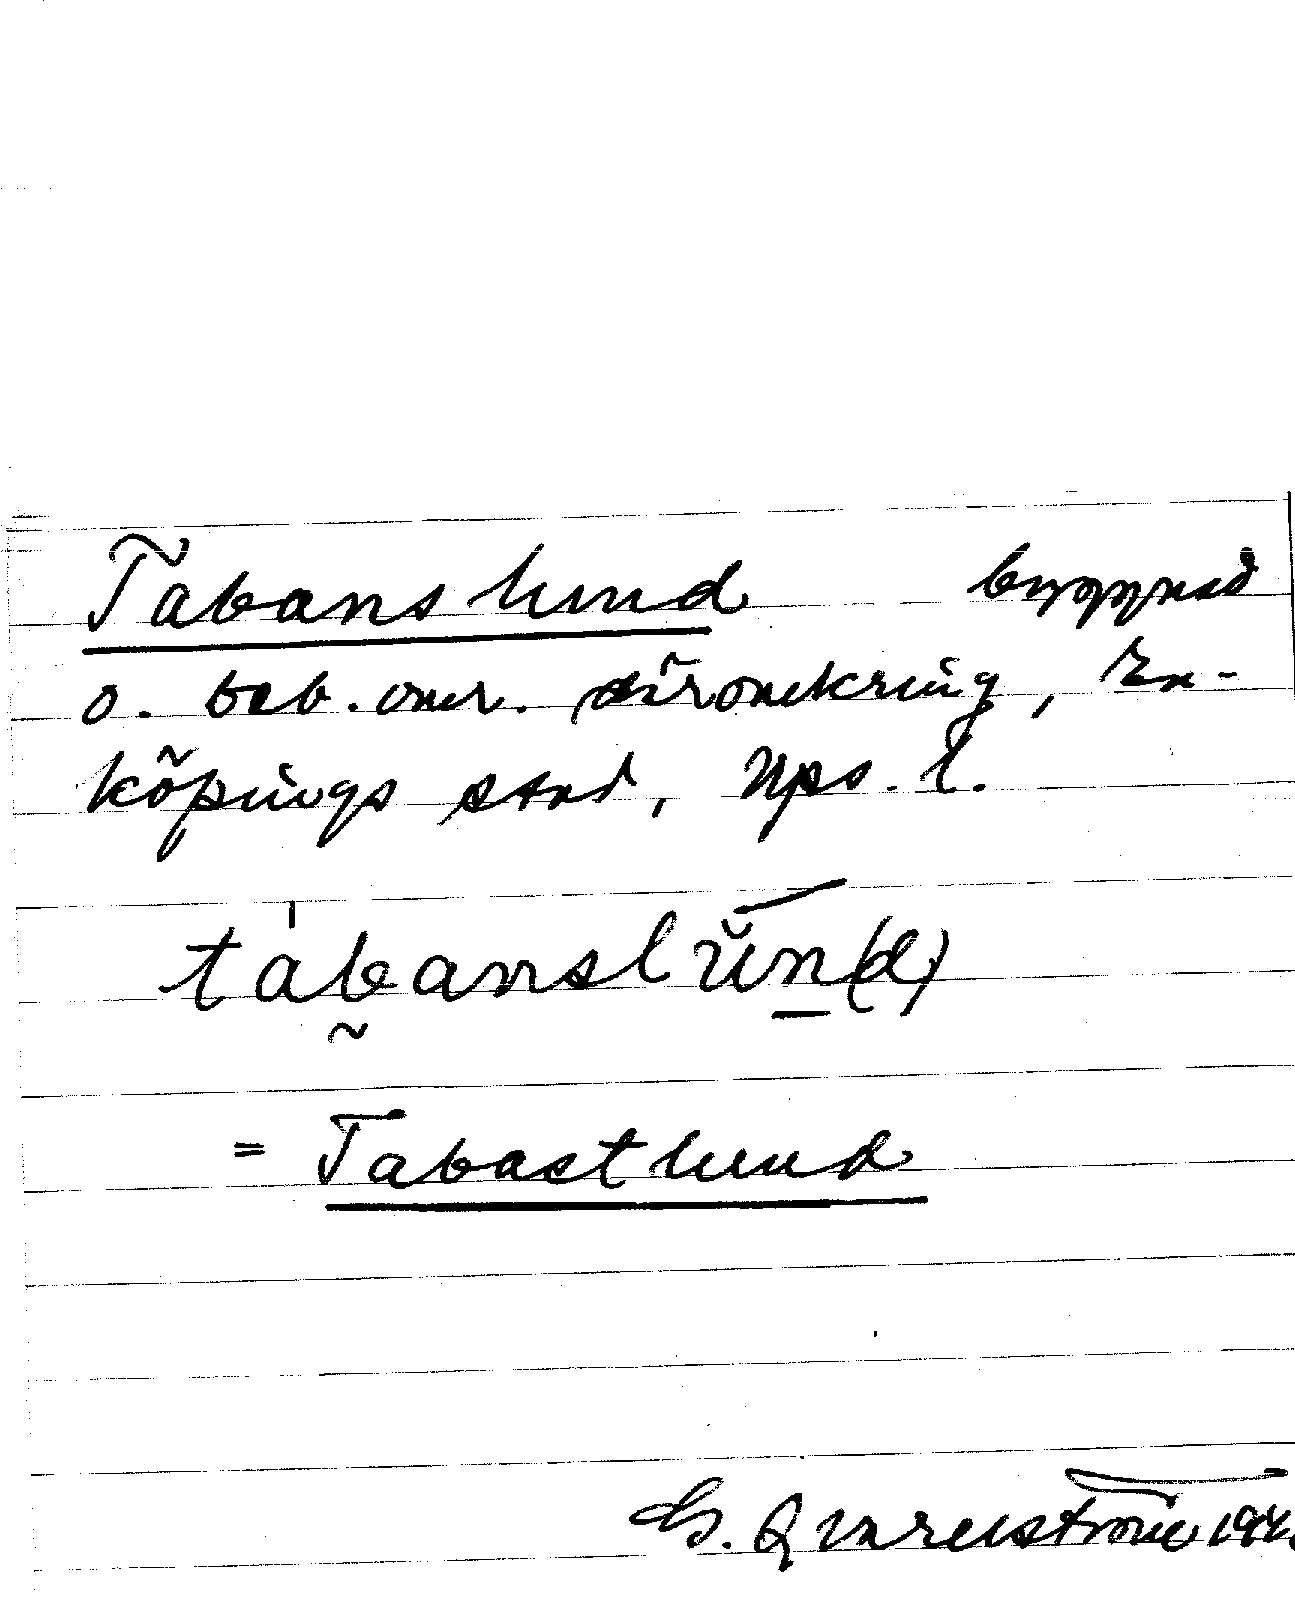 Tabanslund byggnad
o. beb.omr. däromkring, En-
köpings stad, Upps. l.
tabanslŭn(d)
= Tabastlund
G. Qvarnström 194